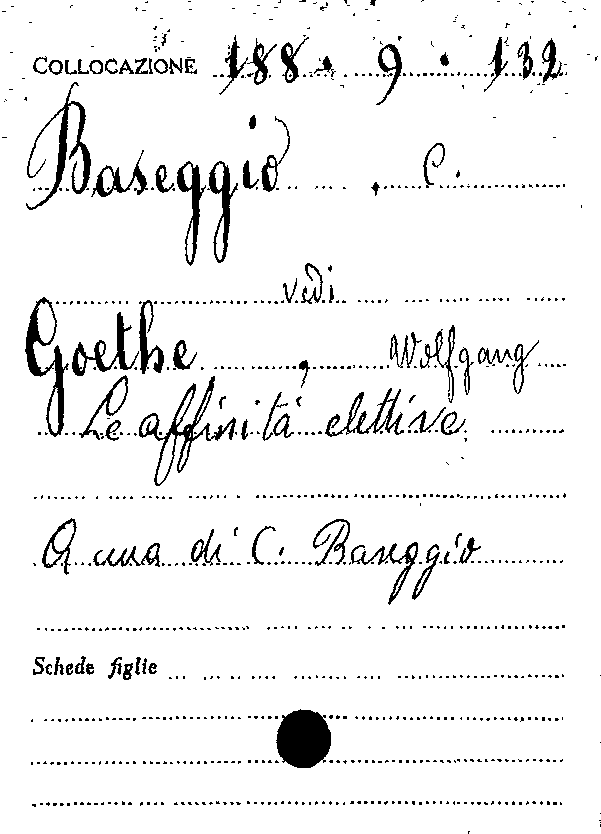 COLLOCAZIONE 188 · 9 · 132
Baseggio, C.
vedi
Goethe, Wolfgang
Le affinità elettive
A cura di C. Baseggio
Schede figlie